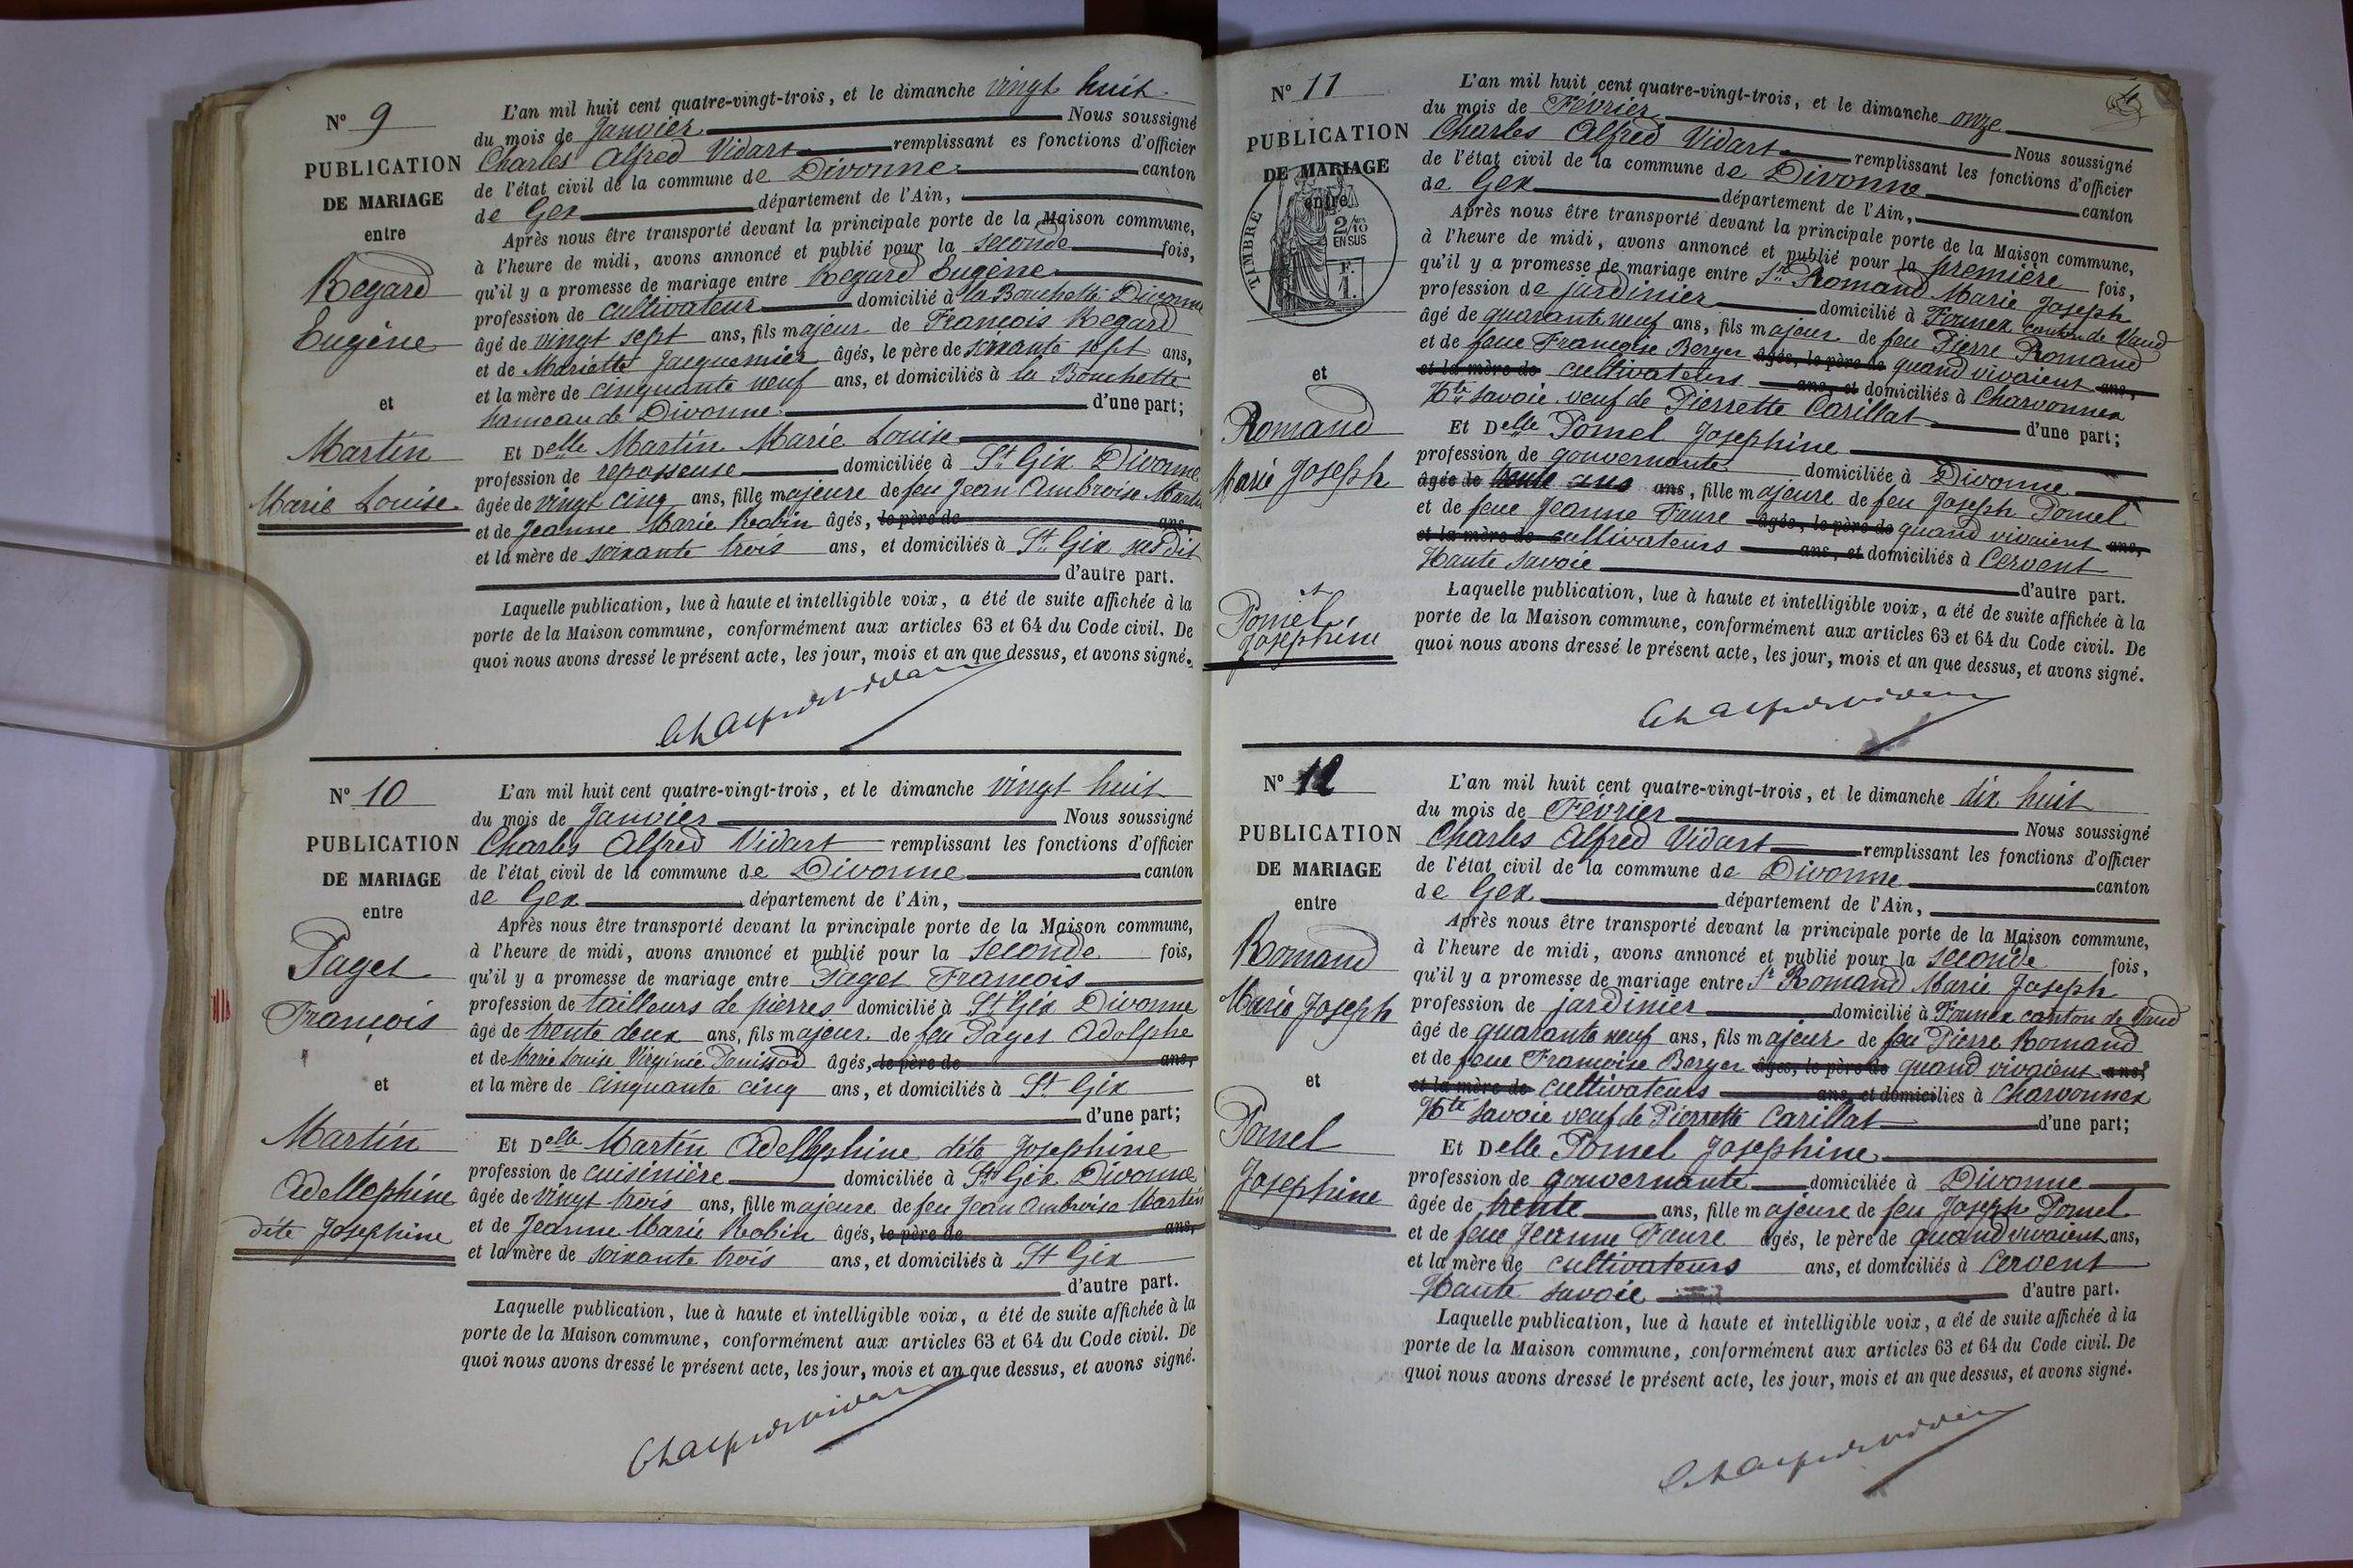 N° 9
PUBLICATION
DE MARIAGE
entre
Regard
Eugène
et
Martin
Marie Louise
L'an mil huit cent quatre-vingt-trois, et le dimanche vingt huit
du mois de Janvier Nous soussigné
Charles Alfred Vidart remplissant es fonctions d'officier
de l'état civil de la commune de Divonne canton
de Gex département de l'Ain,
Après nous être transporté devant la principale porte de la Maison commune,
à l'heure de midi, avons annoncé et publié pour la seconde fois,
qu'il y a promesse de mariage entre Regard Eugène
profession de cultivateur domicilié à la Bouchette Divonne
âgé de vingt sept ans, fils majeur de François Regard
et de Mariette Jacquemier âgés, le père de soixante sept ans,
et la mère de cinquante neuf ans, et domiciliés à la Bouchette
hameau de Divonne d'une part;
Et Delle Martin Marie Louise
profession de repasseuse domiciliée à St Gix Divonne
âgée de vingt cinq ans, fille majeure de feu Jean Ambroise Martin
et de Jeanne Marie Robin âgés, le père de ans,
et la mère de soixante trois ans, et domiciliés à St Gix susdit
d'autre part.
Laquelle publication, lue à haute et intelligible voix, a été de suite affichée à la
porte de la Maison commune, conformément aux articles 63 et 64 du Code civil. De
quoi nous avons dressé le présent acte, les jour, mois et an que dessus, et avons signé.
N° 10
PUBLICATION
DE MARIAGE
entre
Paget
François
et
Martin
Adellephine
dite Josephine
L'an mil huit cent quatre-vingt-trois, et le dimanche vingt huit
du mois de Janvier Nous soussigné
Charles Alfred Vidart remplissant les fonctions d'officier
de l'état civil de la commune de Divonne canton
de Gex département de l'Ain,
Après nous être transporté devant la principale porte de la Maison commune,
à l'heure de midi, avons annoncé et publié pour la seconde fois,
qu'il y a promesse de mariage entre Paget François
profession de tailleurs de pierres domicilié à St Gix Divonne
âgé de trente deux ans, fils majeur de feu Paget Adolphe
et de Marie Louise Virginie Panissod âgés, le père de ans,
et la mère de cinquante cinq ans, et domiciliés à St Gix
d'une part;
Et Delle Martin Adellephine dite Josephine
profession de cuisinière domiciliée à St Gix Divonne
âgée de vingt trois ans, fille majeure de feu Jean Ambroise Martin
et de Jeanne Marie Robin âgés, le père de ans,
et la mère de soixante trois ans, et domiciliés à St Gix
d'autre part.
Laquelle publication, lue à haute et intelligible voix, a été de suite affichée à la
porte de la Maison commune, conformément aux articles 63 et 64 du Code civil. De
quoi nous avons dressé le présent acte, les jour, mois et an que dessus, et avons signé.
N° 11
PUBLICATION
DE MARIAGE
entre
TIMBRE
2/10
EN SUS
F.
1.
et
Romand
Marie Joseph
et
Pomel
Josephine
L'an mil huit cent quatre-vingt-trois, et le dimanche onze
du mois de Février Nous soussigné
Charles Alfred Vidart remplissant les fonctions d'officier
de l'état civil de la commune de Divonne canton
de Gex département de l'Ain,
Après nous être transporté devant la principale porte de la Maison commune,
à l'heure de midi, avons annoncé et publié pour la première fois,
qu'il y a promesse de mariage entre Sr Romand Marie Joseph
profession de jardinier domicilié à Founex canton de Vaud
âgé de quarante neuf ans, fils majeur de feu Pierre Romand
et de feue Françoise Berger âgés, le père de quand vivaient ans,
et la mère de cultivateurs ans, et domiciliés à Charvonnex
Hte Savoie veuf de Pierrette Carillat d'une part;
Et Delle Pomel Josephine
profession de gouvernante domiciliée à Divonne
âgée de trente ans ans, fille majeure de feu Joseph Pomel
et de feue Jeanne Faure âgés, le père de quand vivaient ans,
et la mère de cultivateurs ans, et domiciliés à Cervent
Haute Savoie d'autre part.
Laquelle publication, lue à haute et intelligible voix, a été de suite affichée à la
porte de la Maison commune, conformément aux articles 63 et 64 du Code civil. De
quoi nous avons dressé le présent acte, les jour, mois et an que dessus, et avons signé.
N° 12
PUBLICATION
DE MARIAGE
entre
Romand
Marie Joseph
et
Pomel
Josephine
L'an mil huit cent quatre-vingt-trois, et le dimanche dix huit
du mois de Février Nous soussigné
Charles Alfred Vidart remplissant les fonctions d'officier
de l'état civil de la commune de Divonne canton
de Gex département de l'Ain,
Après nous être transporté devant la principale porte de la Maison commune,
à l'heure de midi, avons annoncé et publié pour la seconde fois,
qu'il y a promesse de mariage entre Sr Romand Marie Joseph
profession de jardinier domicilié à Founex canton de Vaud
âgé de quarante neuf ans, fils majeur de feu Pierre Romand
et de feue Françoise Berger âgés, le père de quand vivaient ans,
et la mère de cultivateurs ans, et domiciliés à Charvonnex
Hte Savoie veuf de Pierrette Carillat d'une part;
Et Delle Pomel Josephine
profession de gouvernante domiciliée à Divonne
âgée de trente ans, fille majeure de feu Joseph Pomel
et de feue Jeanne Faure âgés, le père de quand vivaient ans,
et la mère de cultivateurs ans, et domiciliés à Cervent
Haute Savoie d'autre part.
Laquelle publication, lue à haute et intelligible voix, a été de suite affichée à la
porte de la Maison commune, conformément aux articles 63 et 64 du Code civil. De
quoi nous avons dressé le présent acte, les jour, mois et an que dessus, et avons signé.